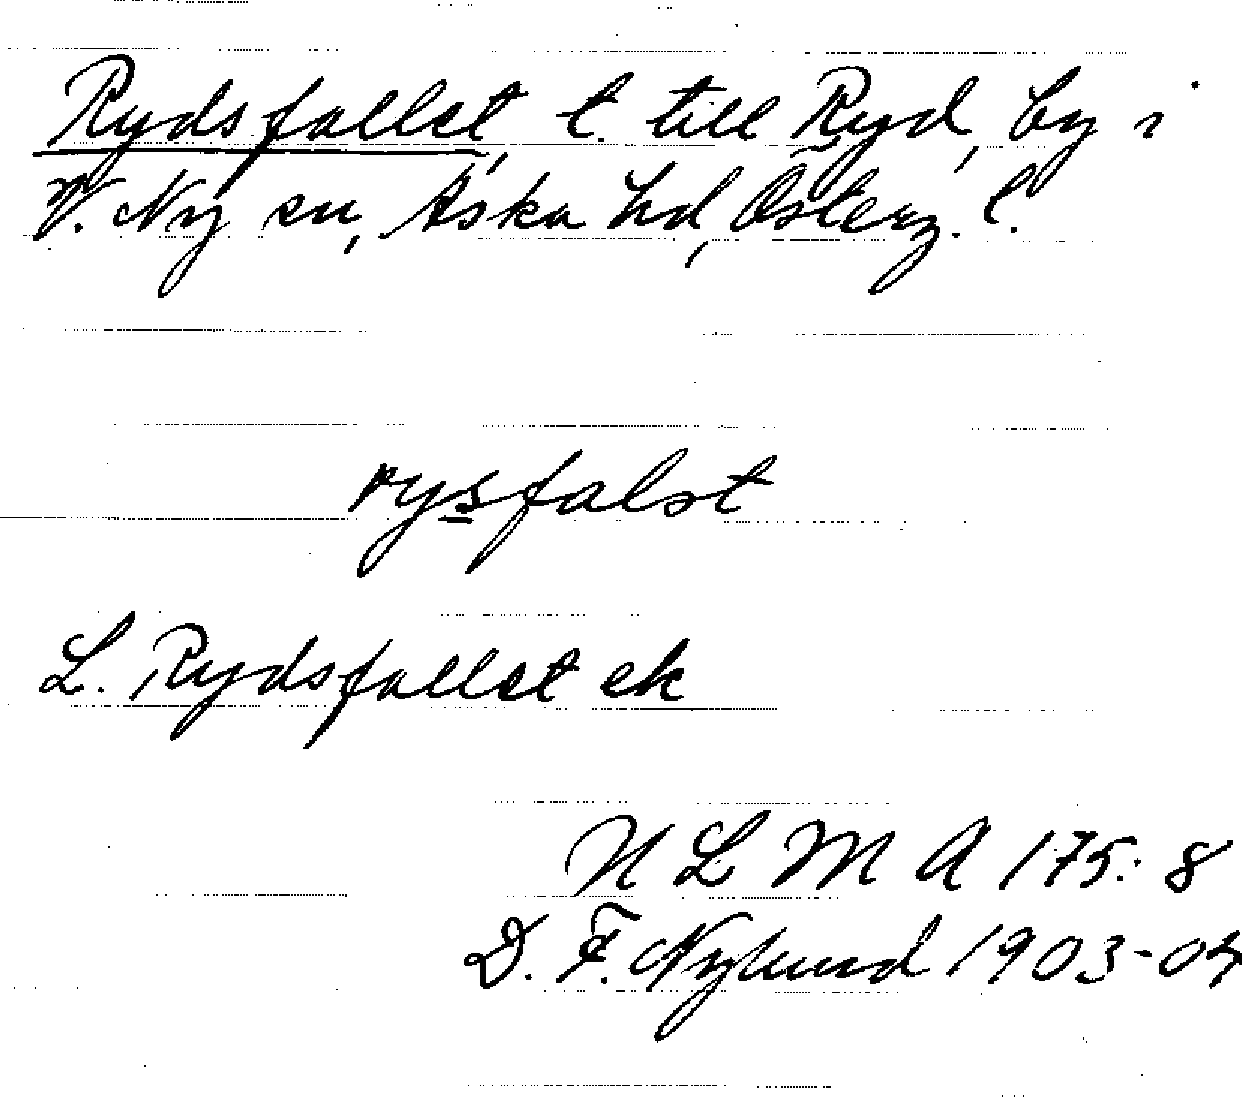 Rydsfallet, t. till Ryd, by i
V. Ny sn, Aska hd, Österg. l.
rysfalst
L. Rydsfallet ek
ULMA 175:8
D. F. Nylund 1903-04